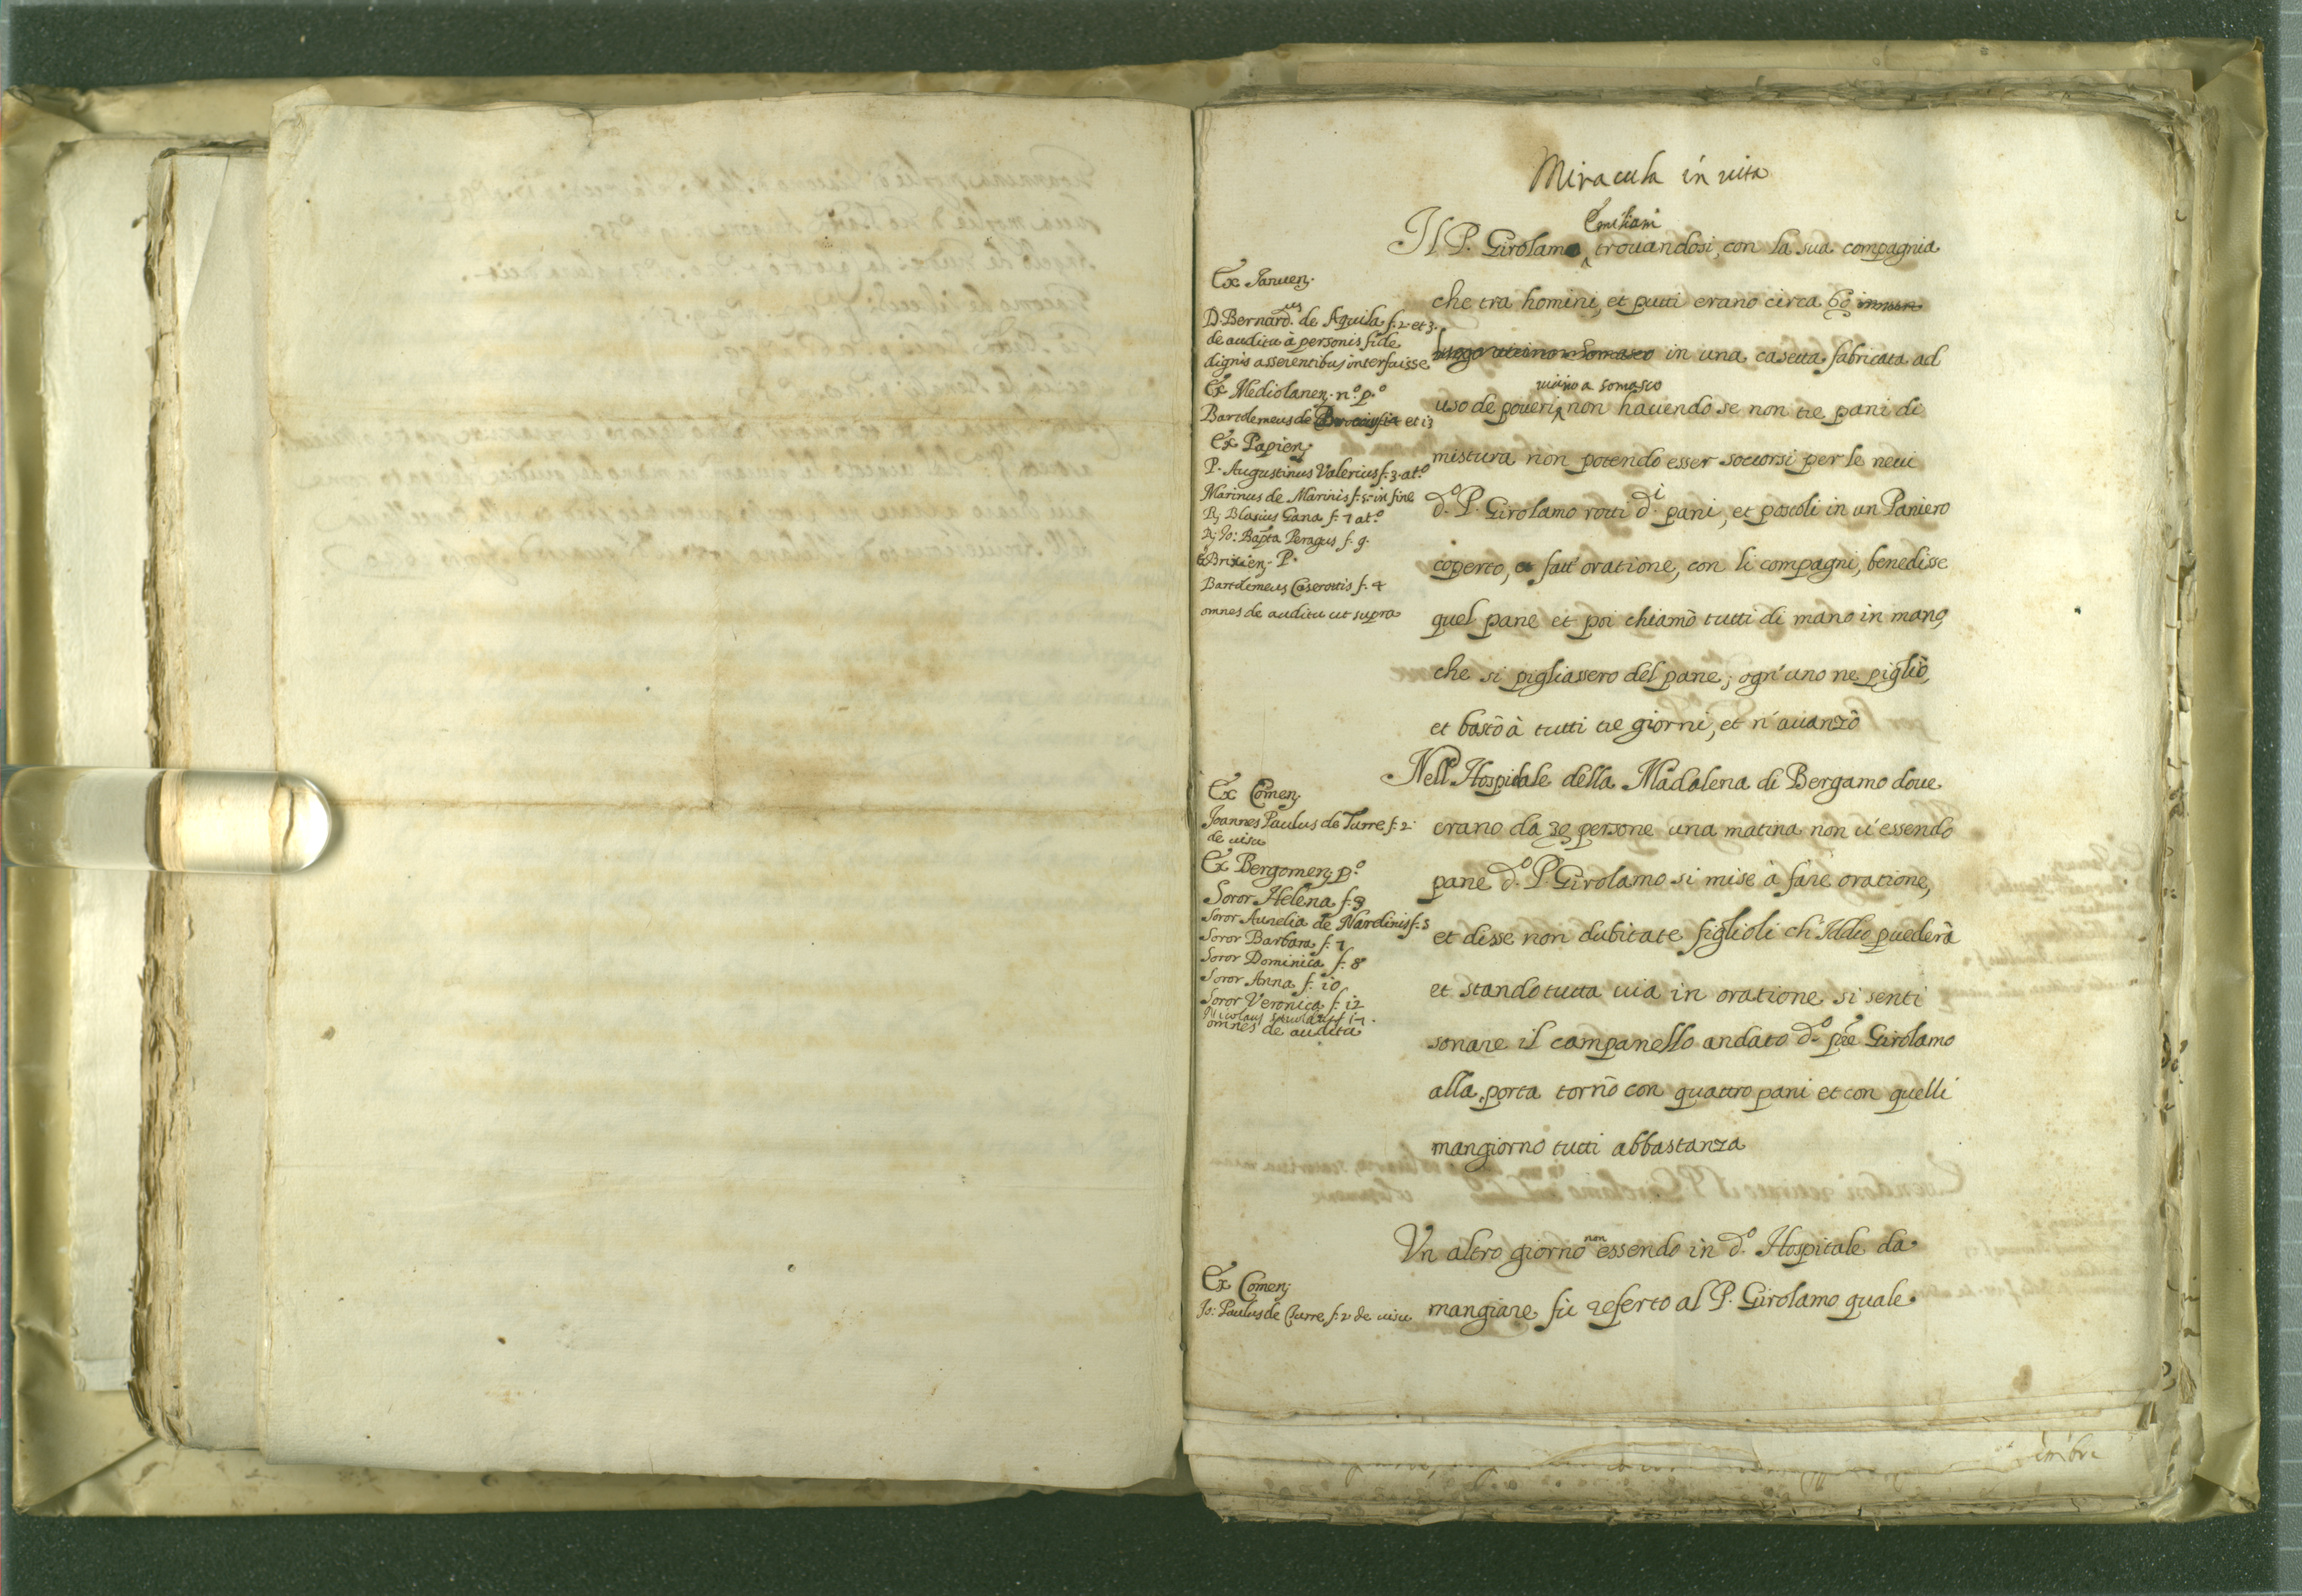 Miracula in uita
Emiliani
Il P. Girolamo trouandosi, con la sua compagnia
che tra homini, et putti erano circa 60
in una casetta fabricata ad
uicino a Somasco
uso de poueri, non hauendo se non tre pani di
mistura non potendo esser soccorsi per le neui
d.o P. Girolamo rotti d.i pani, et postoli in un Paniero
coperto, et fatt' oratione, con li compagni, benedisse
quel pane et poi chiamò tutti di mano in mano,
che si pigliassero del pane; ogn'uno ne pigliò,
et bastò à tutti tre giorni, et n'auanzò
Nell' Hospitale della Madalena di Bergamo doue
erano da 30 persone una matina non u'essendo
pane d.o P. Girolamo si mise à fare oratione,
et disse non dubitate figlioli ch'Iddio puederà
et stando tutta uia in oratione si senti
sonare il campanello andato d.o pre Girolamo
alla porta tornò con quattro pani et con quelli
mangiorno tutti abbastanza
Vn altro giorno non essendo in d.o Hospitale da
mangiare fù referto al P. Girolamo quale
Ex Januen;
D. Bernard.us de Aquila f. 2 et 3.
de auditu à personis fide
dignis asserentibus interfuisse
Ex Mediolanen; n.o p.o
Bartolemeus de et 13
Ex Papien;
P. Augustinus Valerius f. 3. at.o
Marinus de Marinis f. 5. in fine
R; Blasius Gana f. 7 at.o
R; Jo: Bapta Peragus f. 9.
Ex Brixien; P.
Bartolemeus Caserottis f. 4
omnes de auditu ut supra
Ex Comen;
Joannes Paulus de Turre f. 2.
de uisu
Ex Bergomen; p.o
Soror Helena f. 3
Soror Aurelia de Nardinis f. 5
Soror Barbara f. 7
Soror Dominica f. 8
Soror Anna f. 10
Soror Veronica f. 12
Nicolaus
omnes de auditu
Ex Comen;
Jo: Paulus de Turre f. 2 de uisu